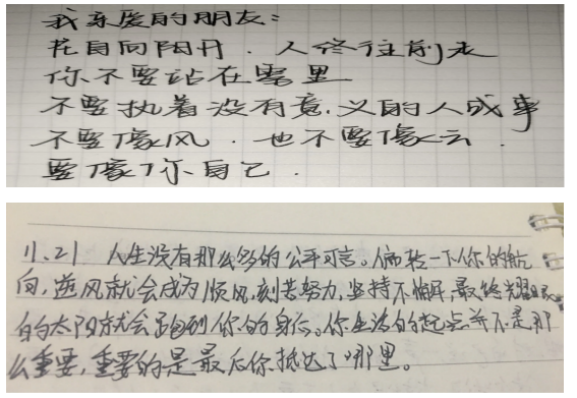 我亲爱的朋友:
花自向阳开.人终往前走
你不要站在雾里
不要执着没有意义的人或事
不要像风.也不要像云.
要像你自己.
11.21 人生没有那么多的公平可言。偏转一下你的航
向,逆风就会成为顺风,刻苦努力,坚持不懈,最终耀眼
的太阳就会跑到你的身后。你生活的起点并不是那
么重要,重要的是最后你抵达了哪里。